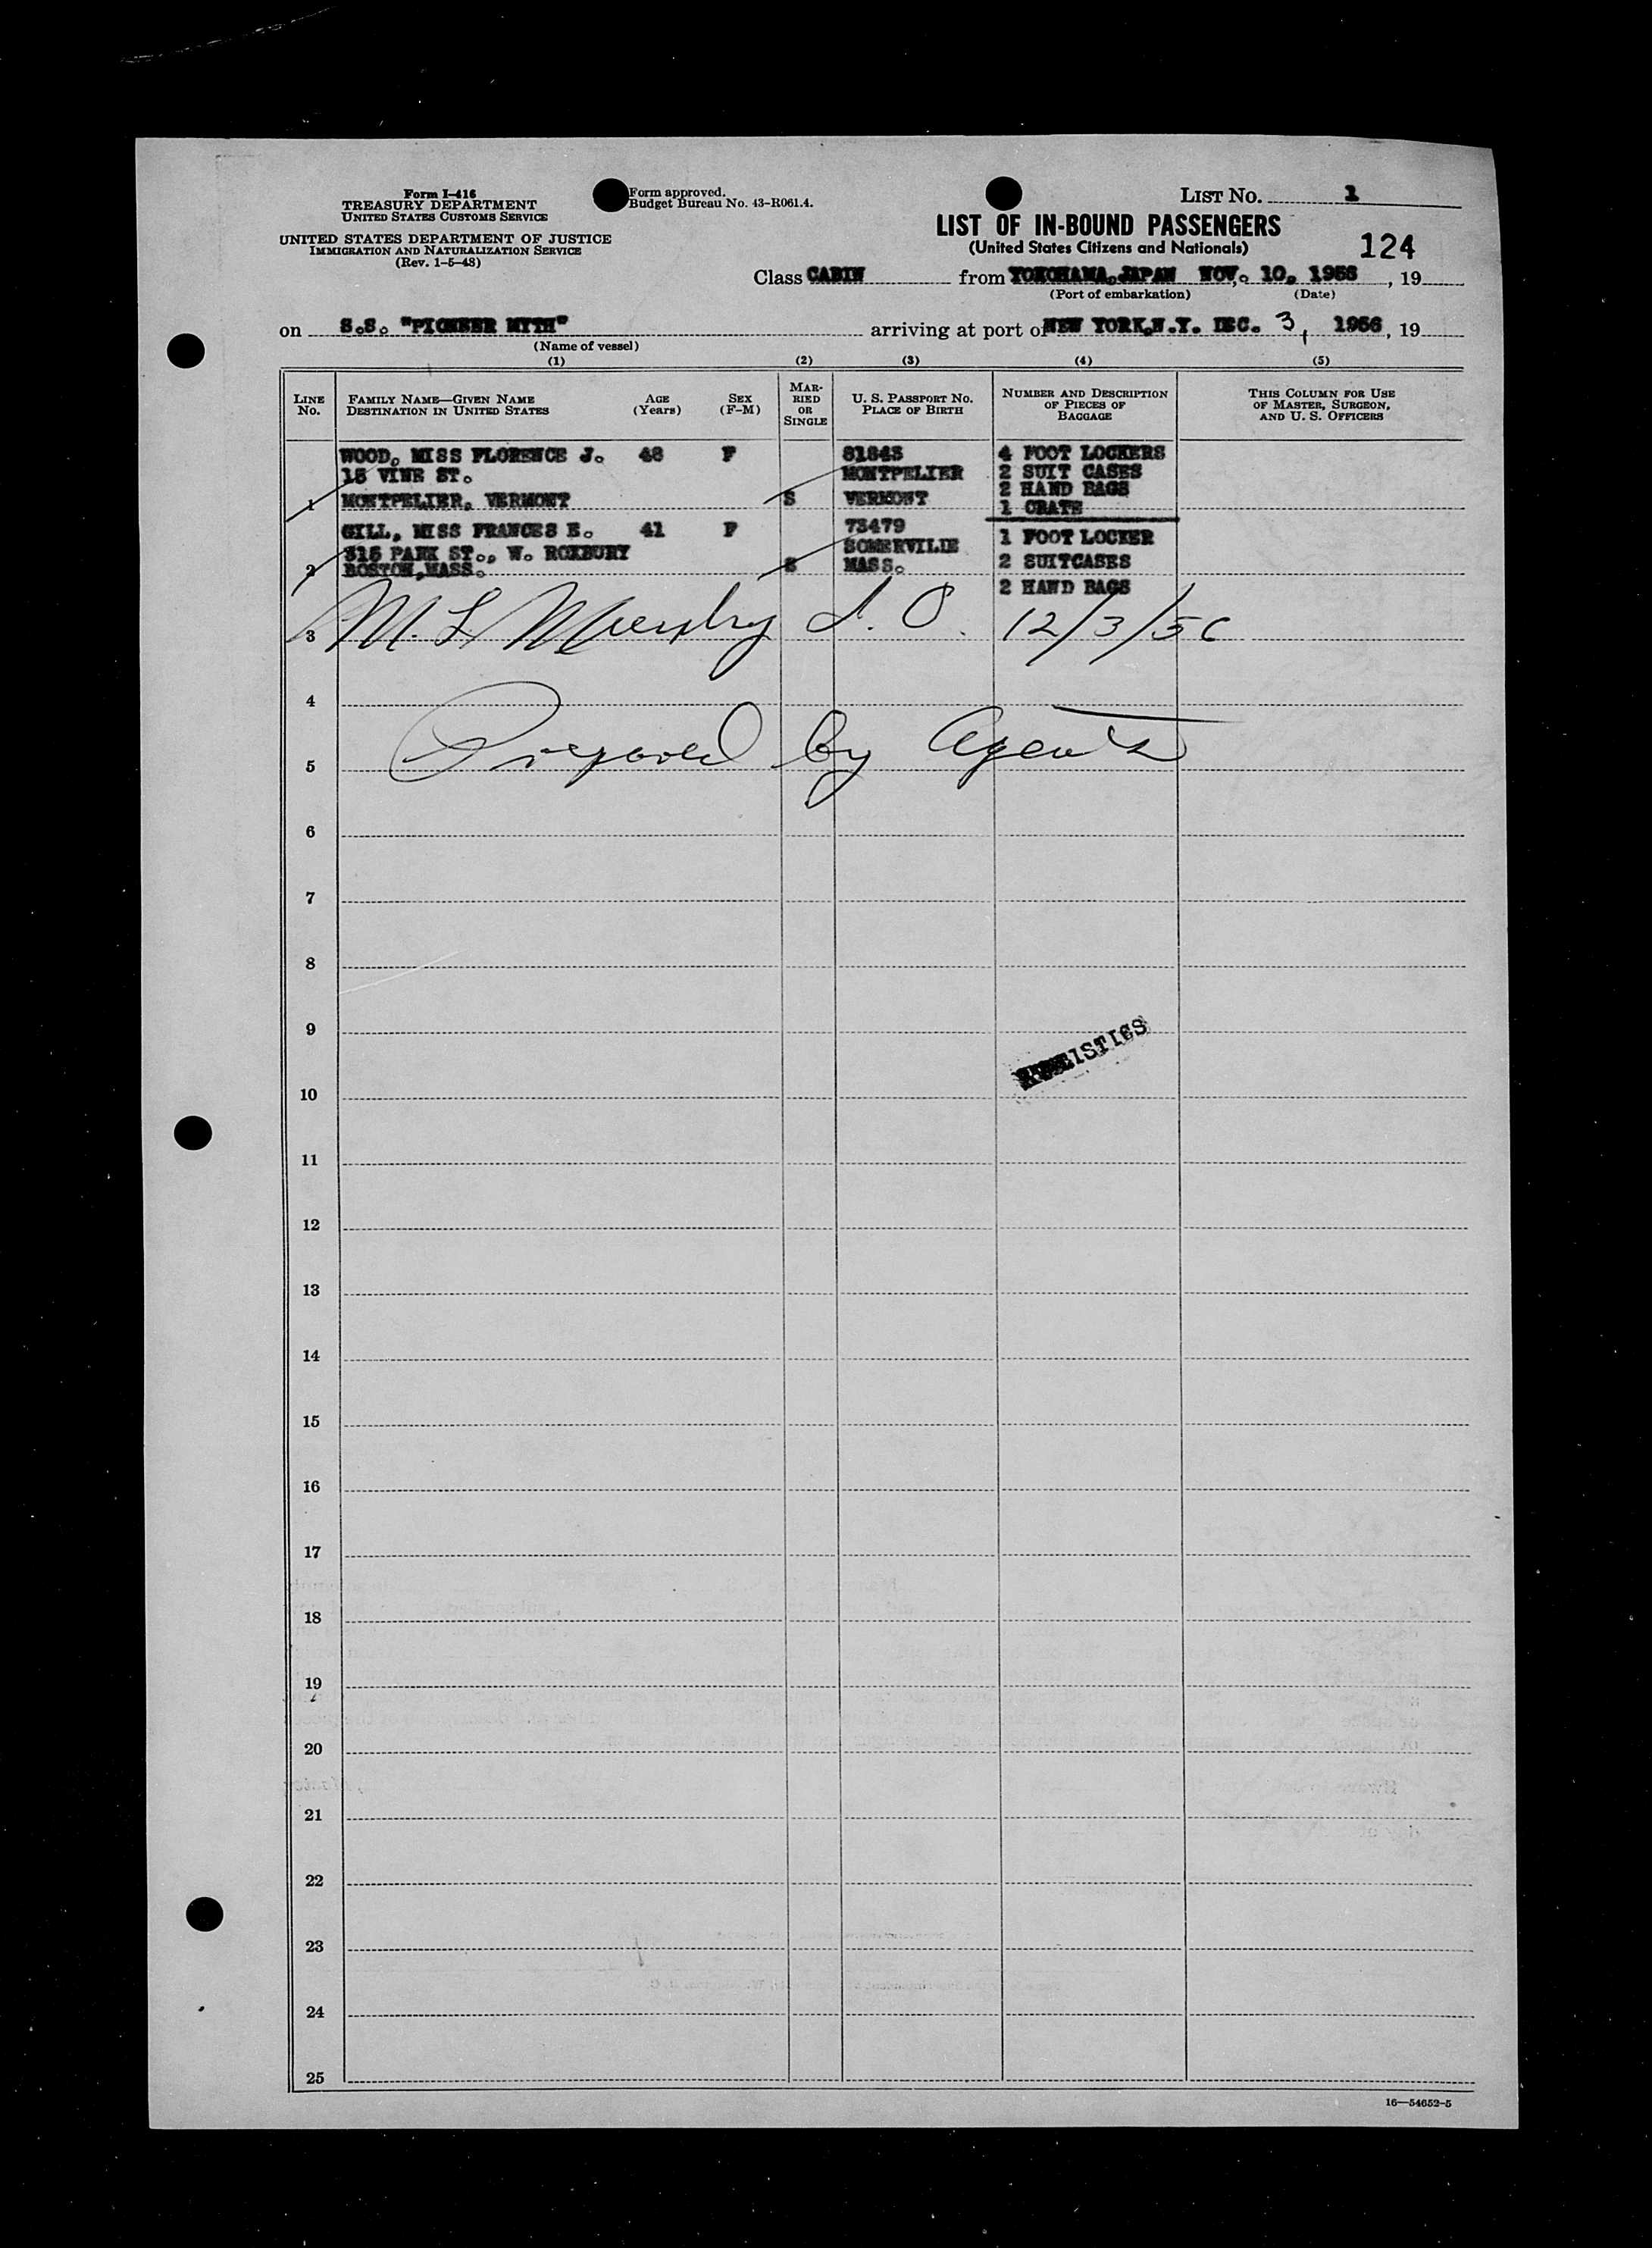 Form I-416
TREASURY DEPARTMENT
UNITED STATES CUSTOMS SERVICE
UNITED STATES DEPARTMENT OF JUSTICE
IMMIGRATION AND NATURALIZATION SERVICE
(Rev. 1-5-48)
Form approved.
Budget Bureau No. 43-R061.4.
LIST NO. 1
LIST OF IN-BOUND PASSENGERS
(United States Citizens and Nationals)
124
Class CABIN from YOKOHAMA, JAPAN NOV. 10, 1956, 19
(Port of embarkation) (Date)
on S.S. "PIONEER MYTH" arriving at port of NEW YORK, N.Y. DEC. 3, 1956, 19
(Name of vessel)
(1) (2) (3) (4) (5)
LINE NO.
FAMILY NAME—GIVEN NAME
DESTINATION IN UNITED STATES
AGE (Years)
SEX (F-M)
MARRIED OR SINGLE
U. S. PASSPORT NO.
PLACE OF BIRTH
NUMBER AND DESCRIPTION OF PIECES OF BAGGAGE
THIS COLUMN FOR USE OF MASTER, SURGEON, AND U. S. OFFICERS
WOOD, MISS FLORENCE J. 48 F 81843 4 FOOT LOCKERS
15 VINE ST. MONTPELIER 2 SUIT CASES
2 HAND BAGS
1 MONTPELIER, VERMONT S VERMONT 1 CRATE
GILL, MISS FRANCES E. 41 F 73479 1 FOOT LOCKER
315 PARK ST., W. ROXBURY SOMERVILLE
2 BOSTON, MASS. S MASS. 2 SUITCASES
2 HAND BAGS
3 M. L. Murphy I. O. 12/3/56
4
5 Prepared by Agents
6
7
8
9
10
11
12
13
14
15
16
17
18
19
20
21
22
23
24
25
16—54652-5